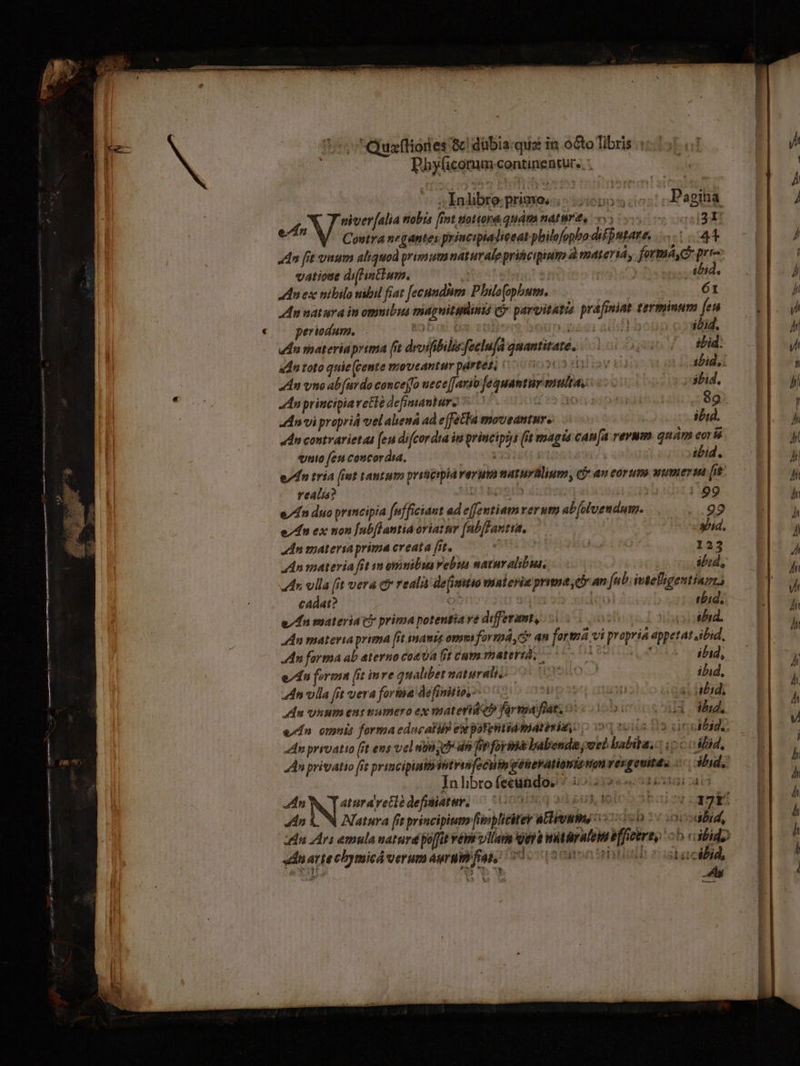 Quæstiones & dubia quæ in octo libris
Physicorum continentur.
In libro primo. Pagina
An Vniuersalia nobis sint notiora quàm naturæ, 31
Contra negantes principia liceat philosopho disputare, 44
An sit vnum aliquod primum naturale principium à materia, forma, & pri-
uatione distinctum, ibid.
An ex nihilo nihil fiat secundum Philosophum. 61
An natura in omnibus magnitudinis & paruitatis præfiniat terminum seu
periodum, ibid.
An materia prima sit diuisibilis seclusâ quantitate, ibid.
An toto quiescente moueantur partes, ibid.
An vno absurdo concesso necessario sequantur multa, ibid.
An principia rectè definiantur, 89
An vi propriâ vel alienâ ad effecta moueantur. ibid.
An contrarietas seu discordia in principijs sit magis causa rerum quàm eorũ
vnio seu concordia, ibid.
An tria sint tantum principia rerum naturalium, & an eorum numerus sit
realis? 99
An duo principia sufficiant ad essentiam rerum absoluendam. 99
An ex non substantia oriatur substantia, ibid.
An materia prima creata sit, 123
An materia sit in omnibus rebus naturalibus, ibid.
An vlla sit vera & realis definitio materiæ primæ, & an sub intelligentiam
cadat? ibid.
An materia & prima potentia re differant, ibid.
An materia prima sit inanis omni formâ, & an formâ vi propriâ appetat, ibid.
An forma ab aterno coæua sit cum materia, ibid.
An forma sit in re qualibet naturali, ibid.
An vlla sit vera formæ definitio, ibid.
An vnum ens numero ex materia & forma fiat, ibid.
An omnis forma educatur ex potentia materiæ, ibid.
An priuatio sit ens vel non, & an sit formæ habendæ, vel habitæ. ibid.
An priuatio sit principium intrinsecum generationis non rei genitæ. ibid.
In libro secundo.
An Natura rectè definiatur. 171
An Natura sit principium simpliciter actiuum, ibid.
An Ars æmula naturæ possit rem vllam verè naturalem efficere, ibid.
An arte chymicâ verum aurum fiat, ibid.
An